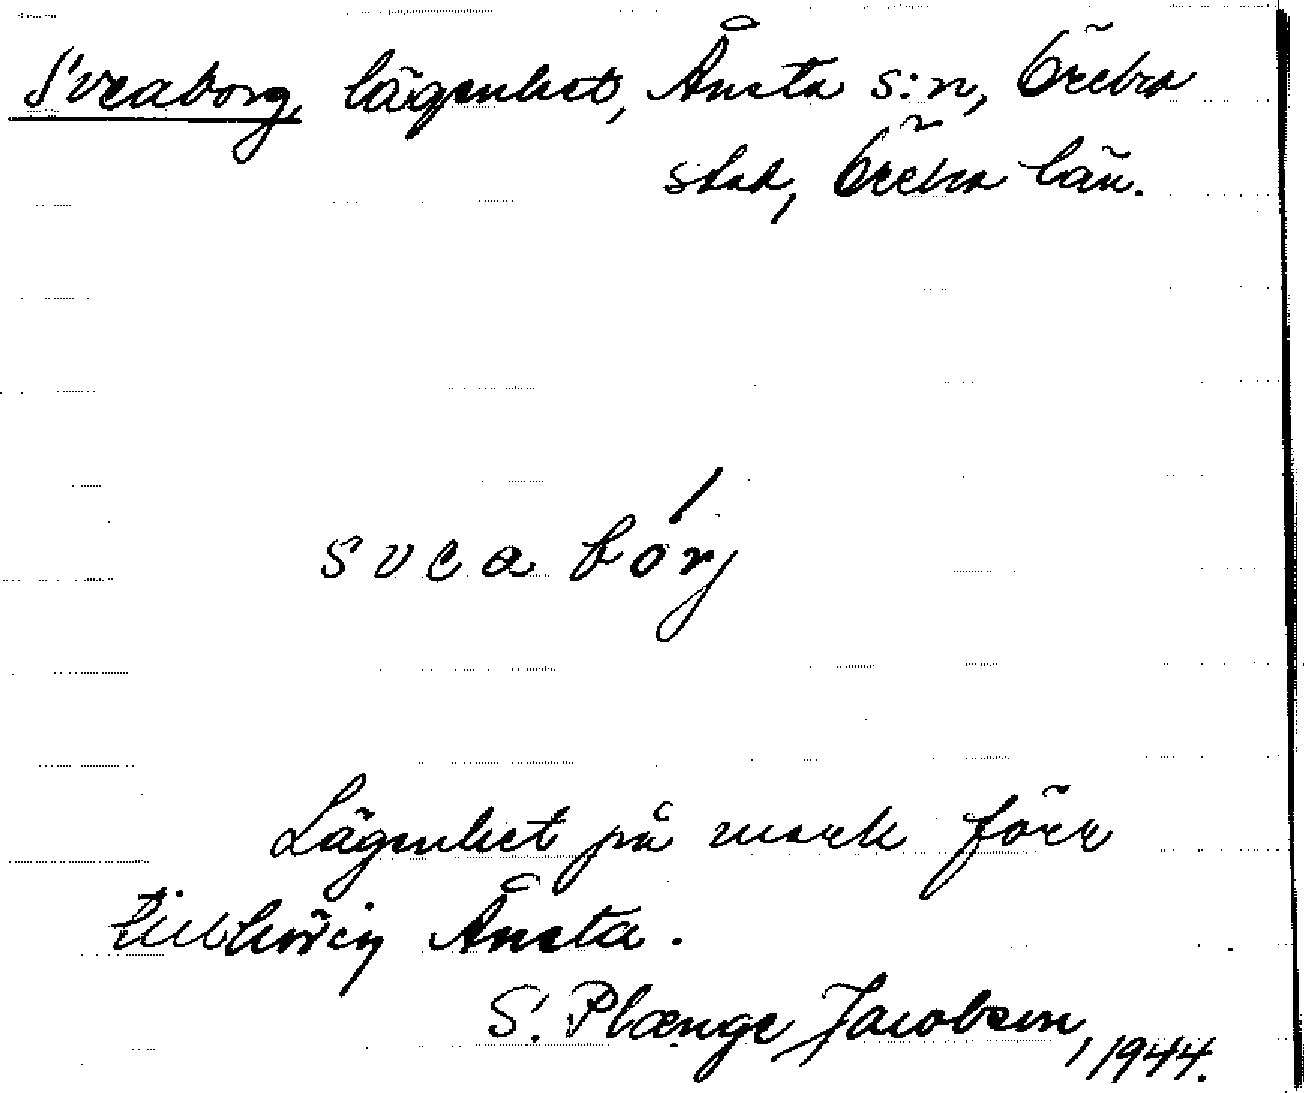 Sveaborg, lägenhet, Ånsta s:n, Örebro
stad, Örebro län.
s v e a bórj
Lägenhet på mark förr
tillhörig Ånsta.
S. Plænge Jacobson, 1944.